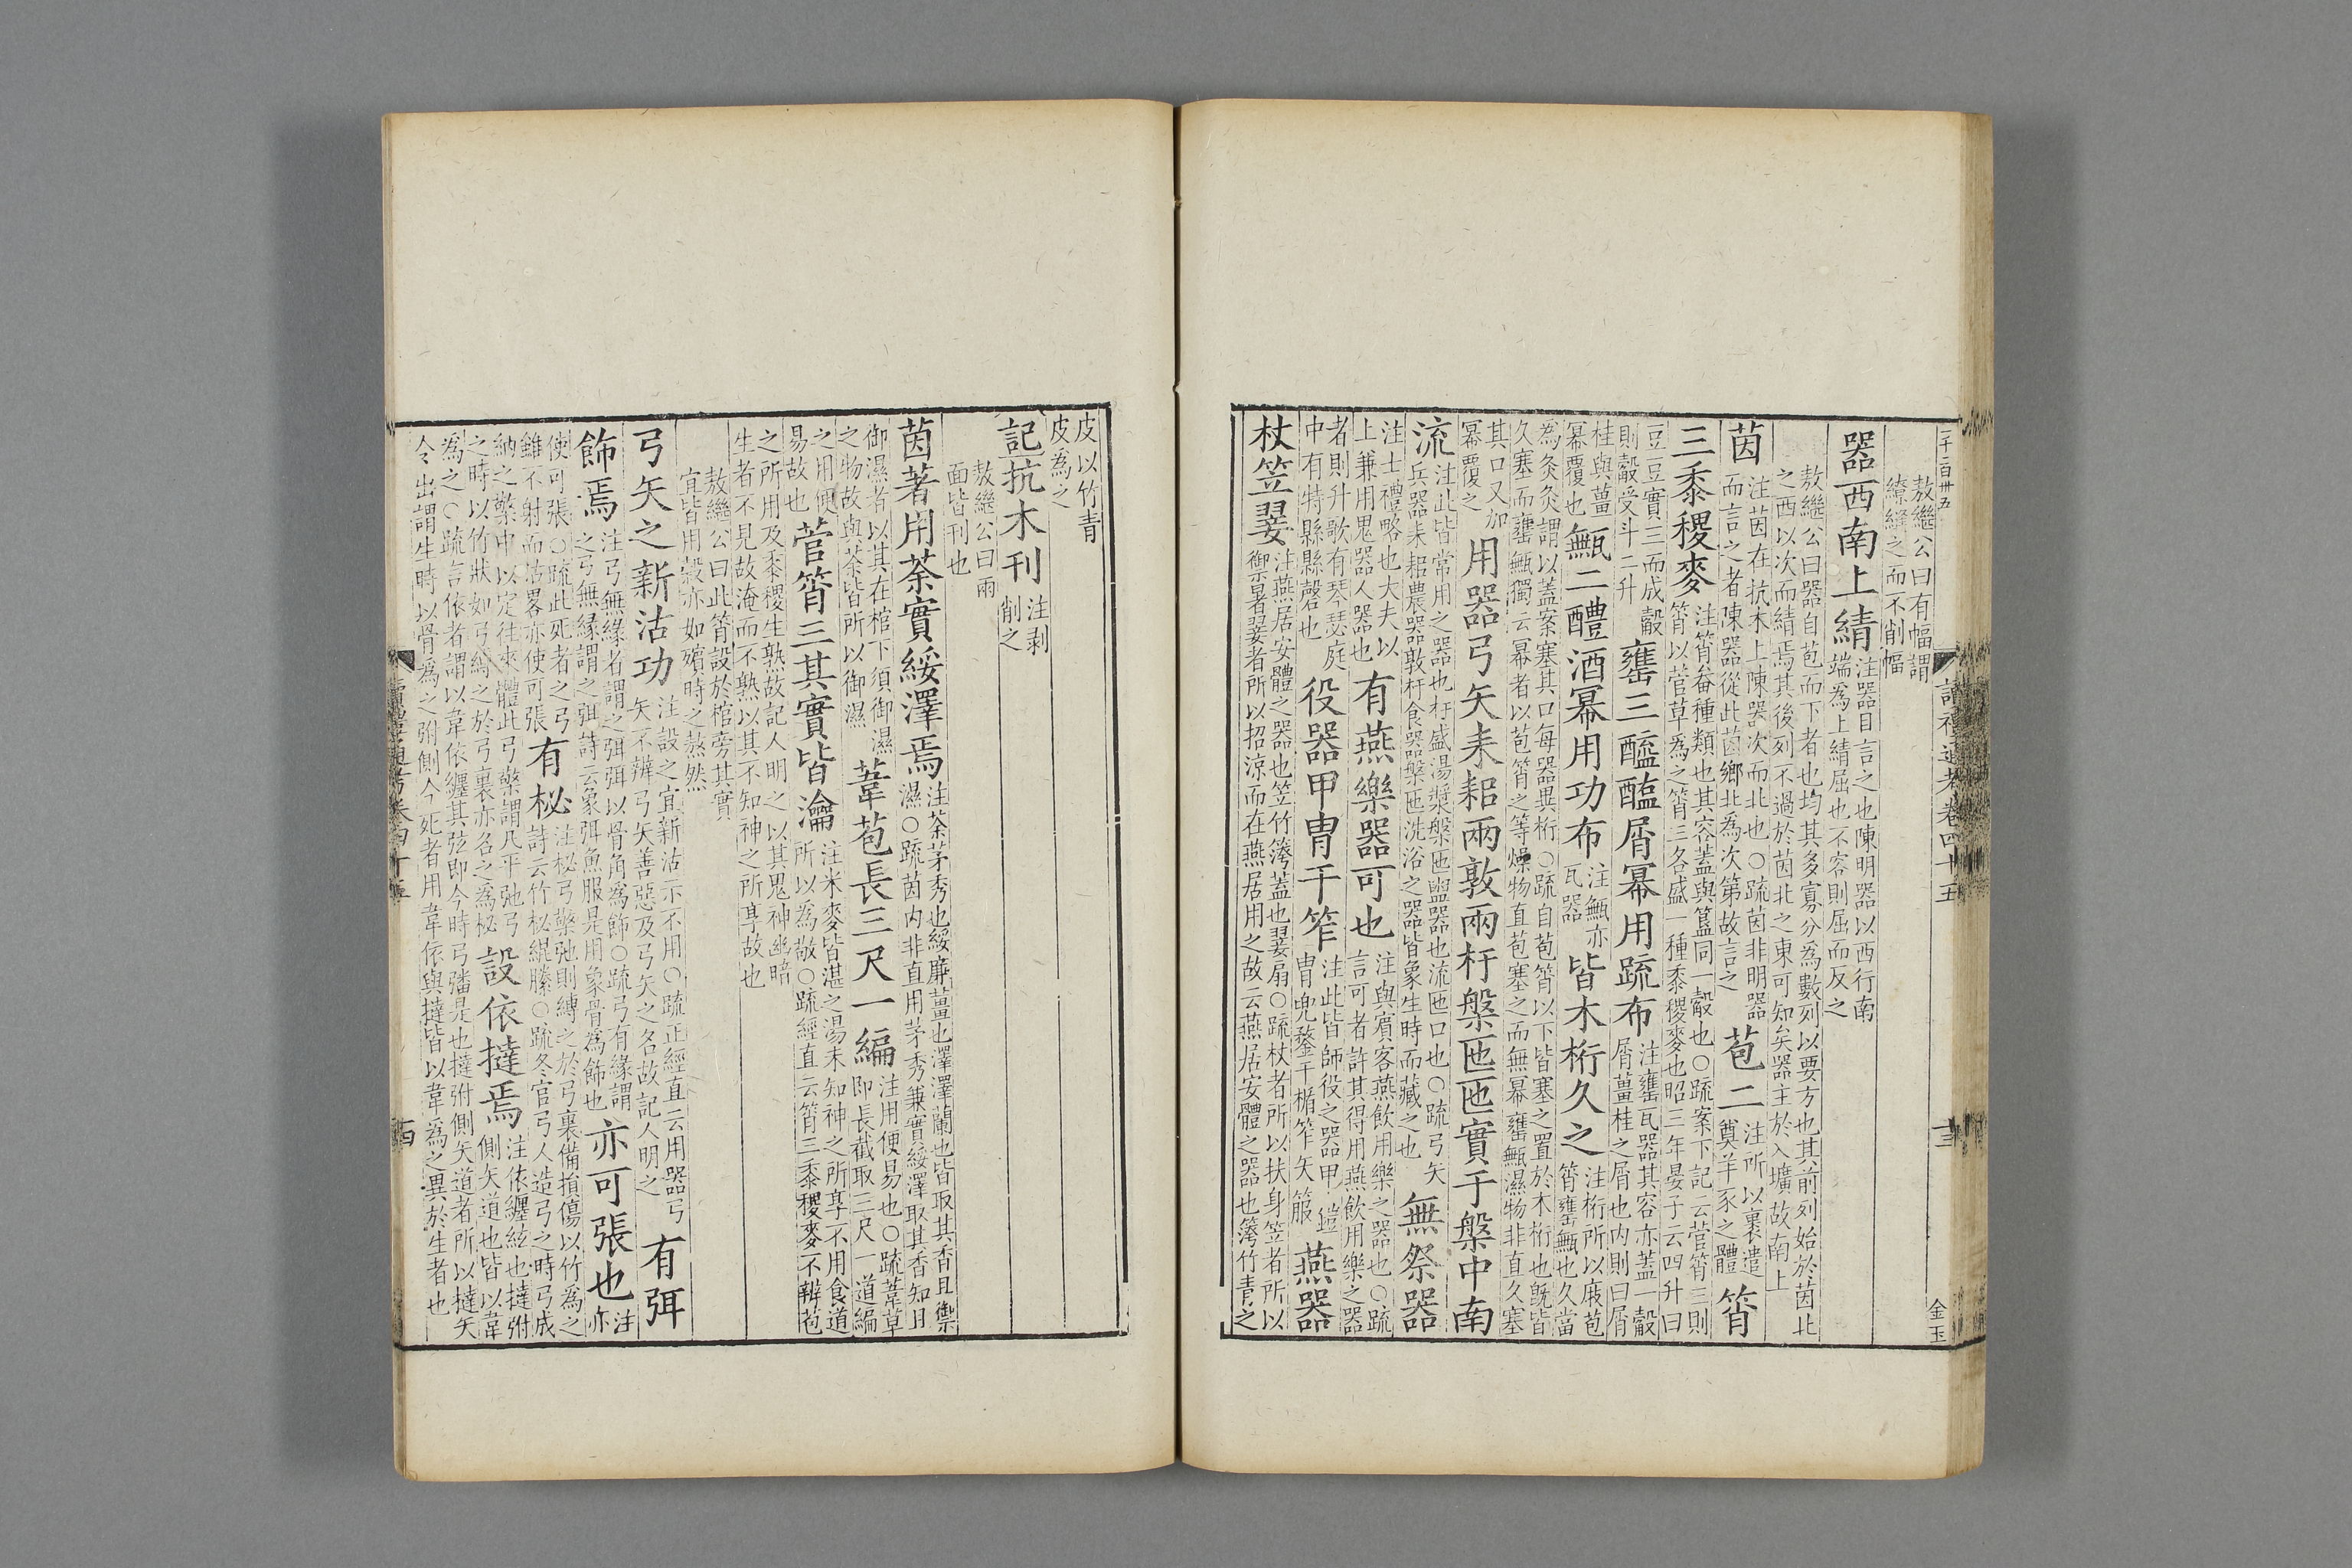 二千二百卅五
讀禮通考卷四十五
十三
金玉
敖繼公曰有幅謂
繚縫之而不削幅
器西南上綪注器目言之也陳明器以西行南
端爲上綪屈也不容則屈而反之
敖繼公曰器自苞而下者也均其多寡分爲數列以要方也其前列始於茵北
之西以次而綪焉其後列不過於茵北之東可知矣器主於入壙故南上
茵注茵在抗木上陳器次而北也○疏茵非明器
而言之者陳器從此茵鄉北爲次第故言之苞二注所以裹遣
奠羊豕之體筲
三黍稷麥注筲畚種類也其容蓋與簋同一觳也○疏案下記云菅筲三則
筲以菅草爲之筲三各盛一種黍稷麥也昭三年晏子云四升曰
豆豆實三而成觳
則觳受斗二升甕三醯醢屑冪用疏布注甕瓦器其容亦蓋一觳
屑薑桂之屑也内則曰屑
桂與薑
冪覆也甒二醴酒冪用功布注甒亦
瓦器皆木桁久之注桁所以庪苞
筲甕甒也久當
爲灸灸謂以蓋案塞其口每器異桁○疏自苞筲以下皆塞之置於木桁也旣皆
久塞而甕甒獨云冪者以苞筲之等燥物直苞塞之而無冪甕甒濕物非直久塞
其口又加
冪覆之用器弓矢耒耜兩敦兩杅槃匜匜實于槃中南
流注此皆常用之器也杅盛湯漿槃匜盥器也流匜口也○疏弓矢
兵器耒耜農器敦杅食器槃匜洗浴之器皆象生時而藏之也無祭器
注士禮略也大夫以
上兼用鬼器人器也有燕樂器可也注與賓客燕飲用樂之器也○疏
言可者許其得用燕飲用樂之器
者則升歌有琴瑟庭
中有特縣縣磬也役器甲冑干笮注此皆師役之器甲鎧
冑兜鍪干楯笮矢服燕器
杖笠翣注燕居安體之器也笠竹䈬蓋也翣扇○疏杖者所以扶身笠者所以
御暑翣者所以招涼而在燕居用之故云燕居安體之器也䈬竹青之
皮以竹青
皮爲之
記抗木刊注剥
削之
敖繼公曰兩
面皆刊也
茵著用荼實綏澤焉注荼茅秀也綏廉薑也澤澤蘭也皆取其香且禦
濕○疏茵内非直用茅秀兼實綏澤取其香知且
御濕者以其在棺下須御濕
之物故與荼皆所以御濕葦苞長三尺一編注用便易也○疏葦草
即長截取三尺一道編
之用便
易故也菅筲三其實皆瀹注米麥皆湛之湯未知神之所享不用食道
所以爲敬○疏經直云筲三黍稷麥不辨苞
之所用及黍稷生熟故記人明之以其鬼神幽暗
生者不見故淹而不熟以其不知神之所享故也
敖繼公曰此筲設於棺旁其實
宜皆用穀亦如殯時之熬然
弓矢之新沽功注設之宜新沽示不用○疏正經直云用器弓
矢不辨弓矢善惡及弓矢之名故記人明之有弭
飾焉注弓無緣者謂之弭弭以骨角爲飾○疏弓有緣謂
之弓無緣謂之弭詩云象弭魚服是用象骨爲飾也亦可張也注
亦
使可張○疏此死者之弓
雖不射而沽畧亦使可張有柲注柲弓檠弛則縛之於弓裏備損傷以竹爲之
詩云竹柲緄縢○疏冬官弓人造弓之時弓成
納之檠中以定往來體此弓檠謂凡平弛弓
之時以竹狀如弓縛之於弓裏亦名之爲柲設依撻焉注依纏絃也撻弣
側矢道也皆以韋
爲之○疏言依者謂以韋依纏其弦即今時弓㢖是也撻弣側矢道者所以撻矢
令出謂生時以骨爲之弣側今死者用韋依與撻皆以韋爲之異於生者也
讀禮通考卷四十五
十四